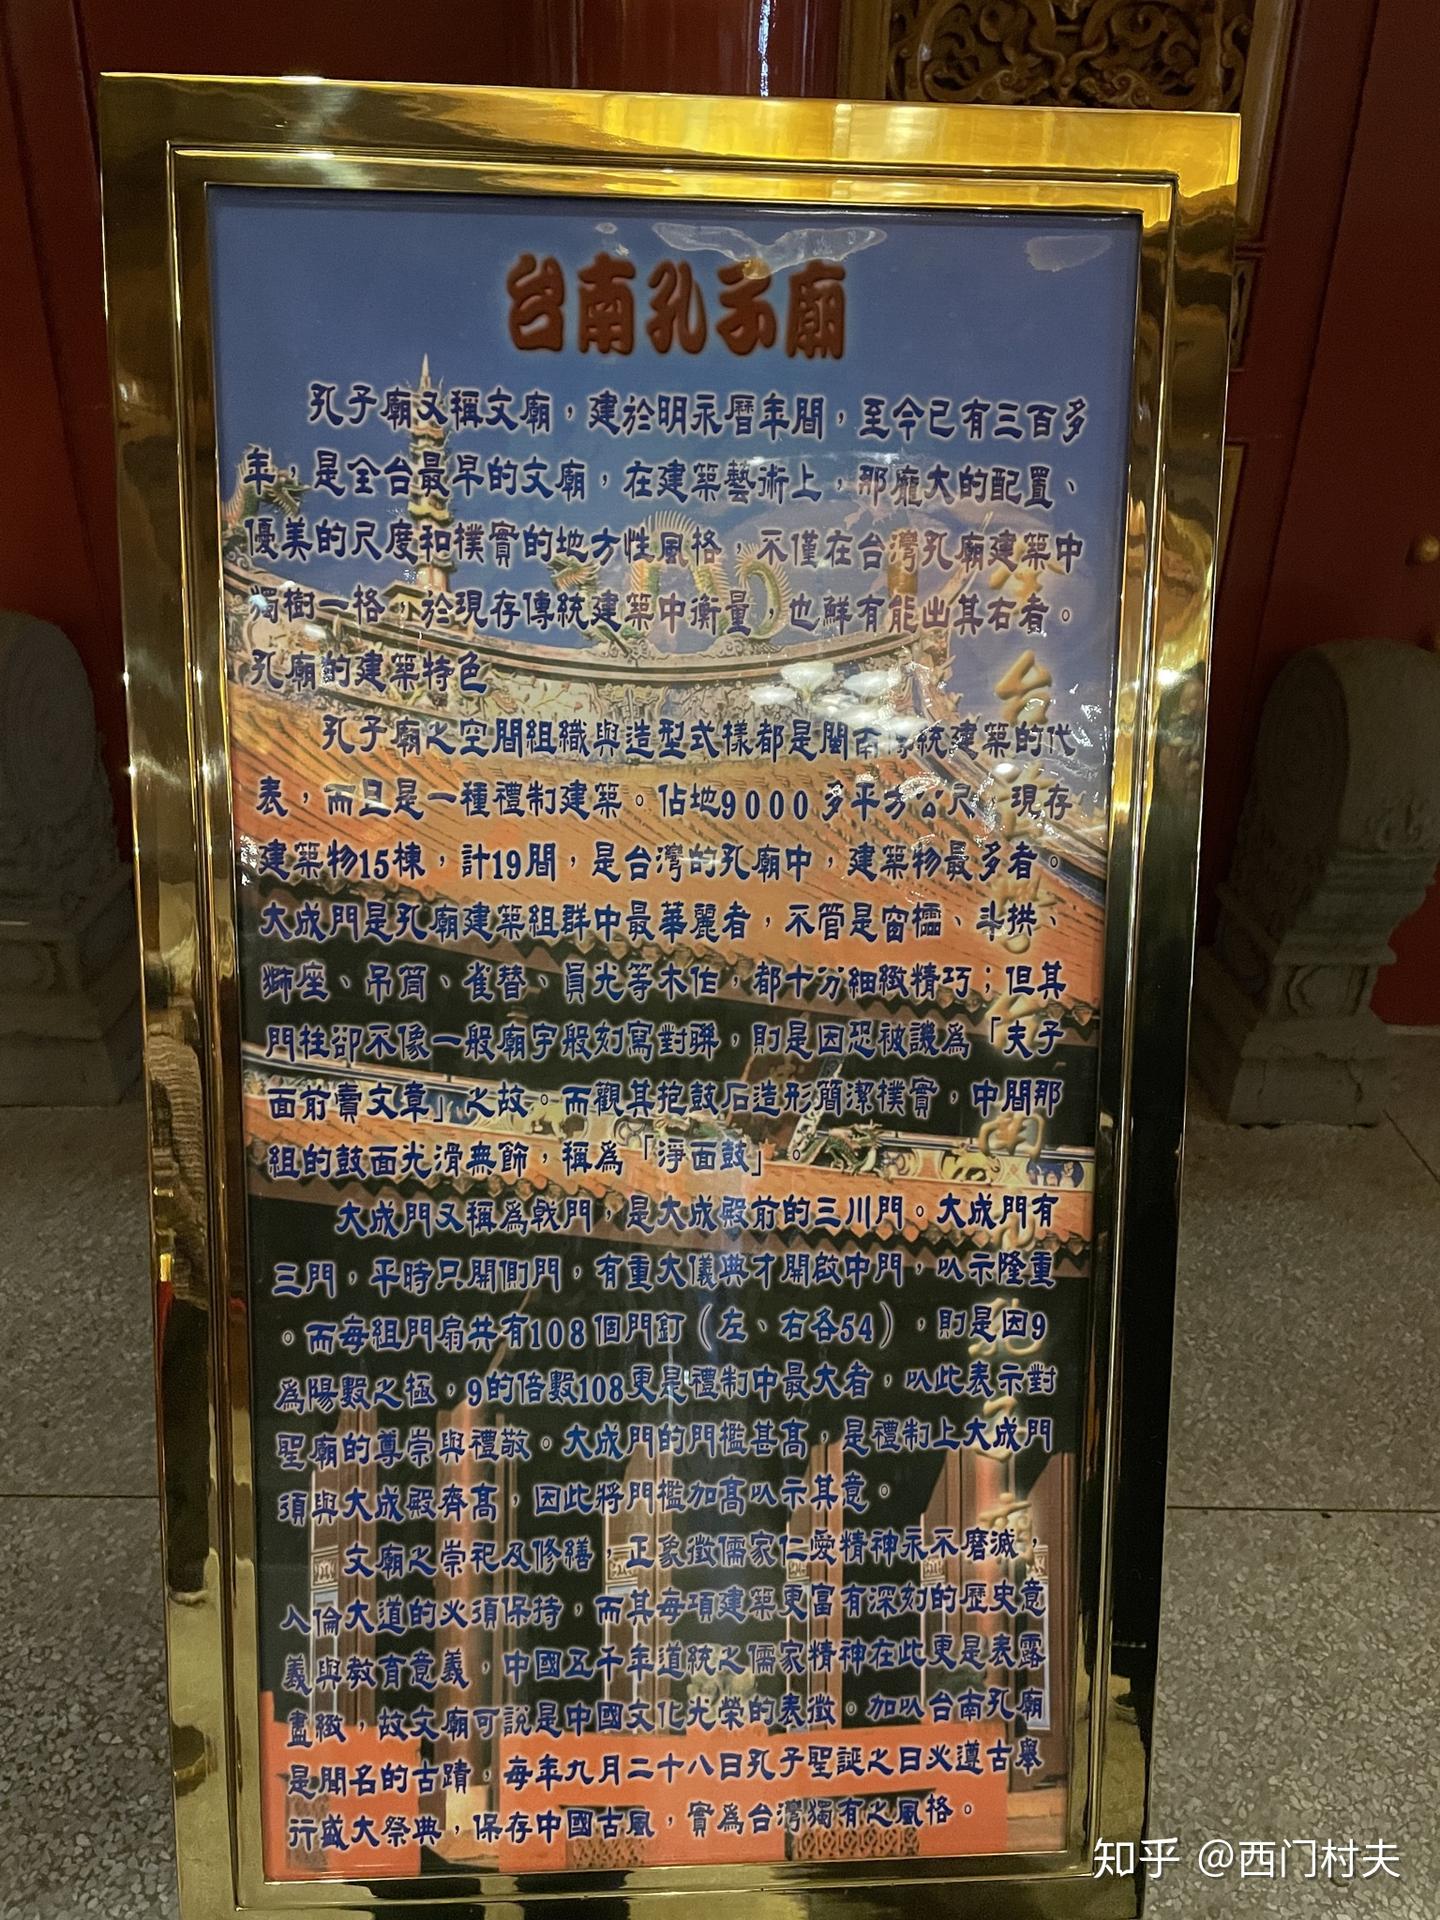 台南孔子廟
孔子廟又稱文廟，建於明永曆年間，至今已有三百多
年，是全台最早的文廟，在建築藝術上，那龐大的配置、
優美的尺度和樸實的地方性風格，不僅在台灣孔廟建築中
獨樹一格，於現存傳統建築中衡量，也鮮有能出其右者。
孔廟的建築特色
孔子廟之空間組織與造型式樣都是閩南傳統建築的代
表，而且是一種禮制建築。佔地9000多平方公尺，現存
建築物15棟，計19間，是台灣的孔廟中，建築物最多者。
大成門是孔廟建築組群中最華麗者，不管是窗櫺、斗拱、
獅座、吊筒、雀替、員光等木作，都十分細緻精巧；但其
門柱卻不像一般廟宇般刻寫對聯，則是因恐被譏為「夫子
面前賣文章」之故。而觀其抱鼓石造形簡潔樸實，中間那
組的鼓面光滑無飾，稱為「淨面鼓」。
大成門又稱為戟門，是大成殿前的三川門。大成門有
三門，平時只開側門，有重大儀典才開啟中門，以示隆重
。而每組門扇共有108個門釘（左、右各54），則是因9
為陽數之極，9的倍數108更是禮制中最大者，以此表示對
聖廟的尊崇與禮敬。大成門的門檻甚高，是禮制上大成門
須與大成殿齊高，因此將門檻加高以示其意。
文廟之崇祀及修繕，正象徵儒家仁愛精神永不磨滅，
人倫大道的必須保持，而其每項建築更富有深刻的歷史意
義與教育意義，中國五千年道統之儒家精神在此更是表露
盡緻，故文廟可說是中國文化光榮的表徵。加以台南孔廟
是聞名的古蹟，每年九月二十八日孔子聖誕之日必遵古舉
行盛大祭典，保存中國古風，實為台灣獨有之風格。
知乎 @西门村夫